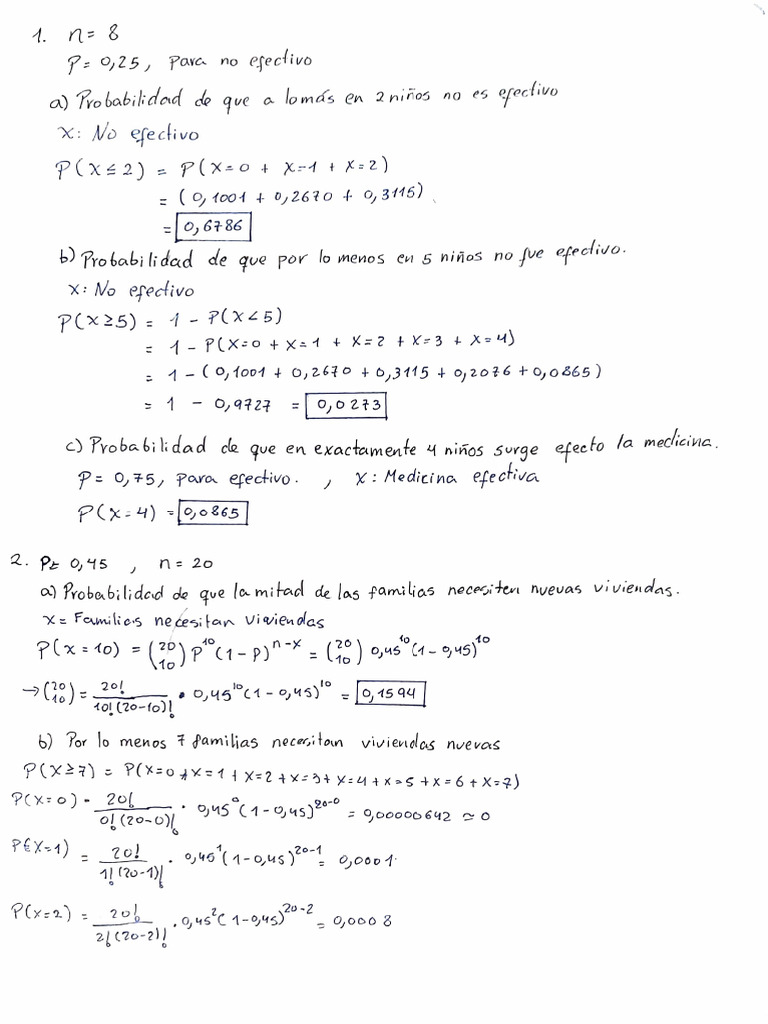 1. n = 8
P = 0,25, para no efectivo
a) Probabilidad de que a lomás en 2 niños no es efectivo
x: No efectivo
P(x ≤ 2) = P(x=0 + x=1 + x=2)
= (0,1001 + 0,2670 + 0,3115)
= 0,6786
b) Probabilidad de que por lo menos en 5 niños no fue efectivo.
x: No efectivo
P(x ≥ 5) = 1 - P(x < 5)
= 1 - P(x=0 + x=1 + x=2 + x=3 + x=4)
= 1 - (0,1001 + 0,2670 + 0,3115 + 0,2076 + 0,0865)
= 1 - 0,9727 = 0,0273
c) Probabilidad de que en exactamente 4 niños surge efecto la medicina.
P = 0,75, para efectivo. , x: Medicina efectiva
P(x=4) = 0,0865
2. P= 0,45 , n = 20
a) Probabilidad de que la mitad de las familias necesiten nuevas viviendas.
x = Familias necesitan viviendas
P(x = 10) = (20 10) P^10 (1 - P)^n-x = (20 10) 0,45^10 (1 - 0,45)^10
→ (20 10) = 20! / 10! (20-10)! • 0,45^10 (1 - 0,45)^10 = 0,1594
b) Por lo menos 7 familias necesitan viviendas nuevas
P(x ≥ 7) = P(x=0 + x=1 + x=2 + x=3 + x=4 + x=5 + x=6 + x=7)
P(x=0) = 20! / 0! (20-0)! • 0,45^0 (1-0,45)^20-0 = 0,00000642 ≃ 0
P(x=1) = 20! / 1! (20-1)! • 0,45^1 (1-0,45)^20-1 = 0,0001
P(x=2) = 20! / 2! (20-2)! • 0,45^2 (1-0,45)^20-2 = 0,0008